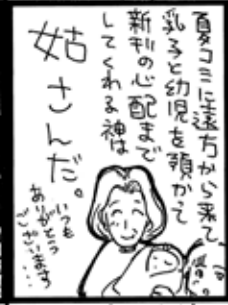 夏コミに遠方から来て
乳子と幼児を預かって
新刊の心配まで
してくれる神は
姑さんだ。
いつも
ありがとう
ございます…